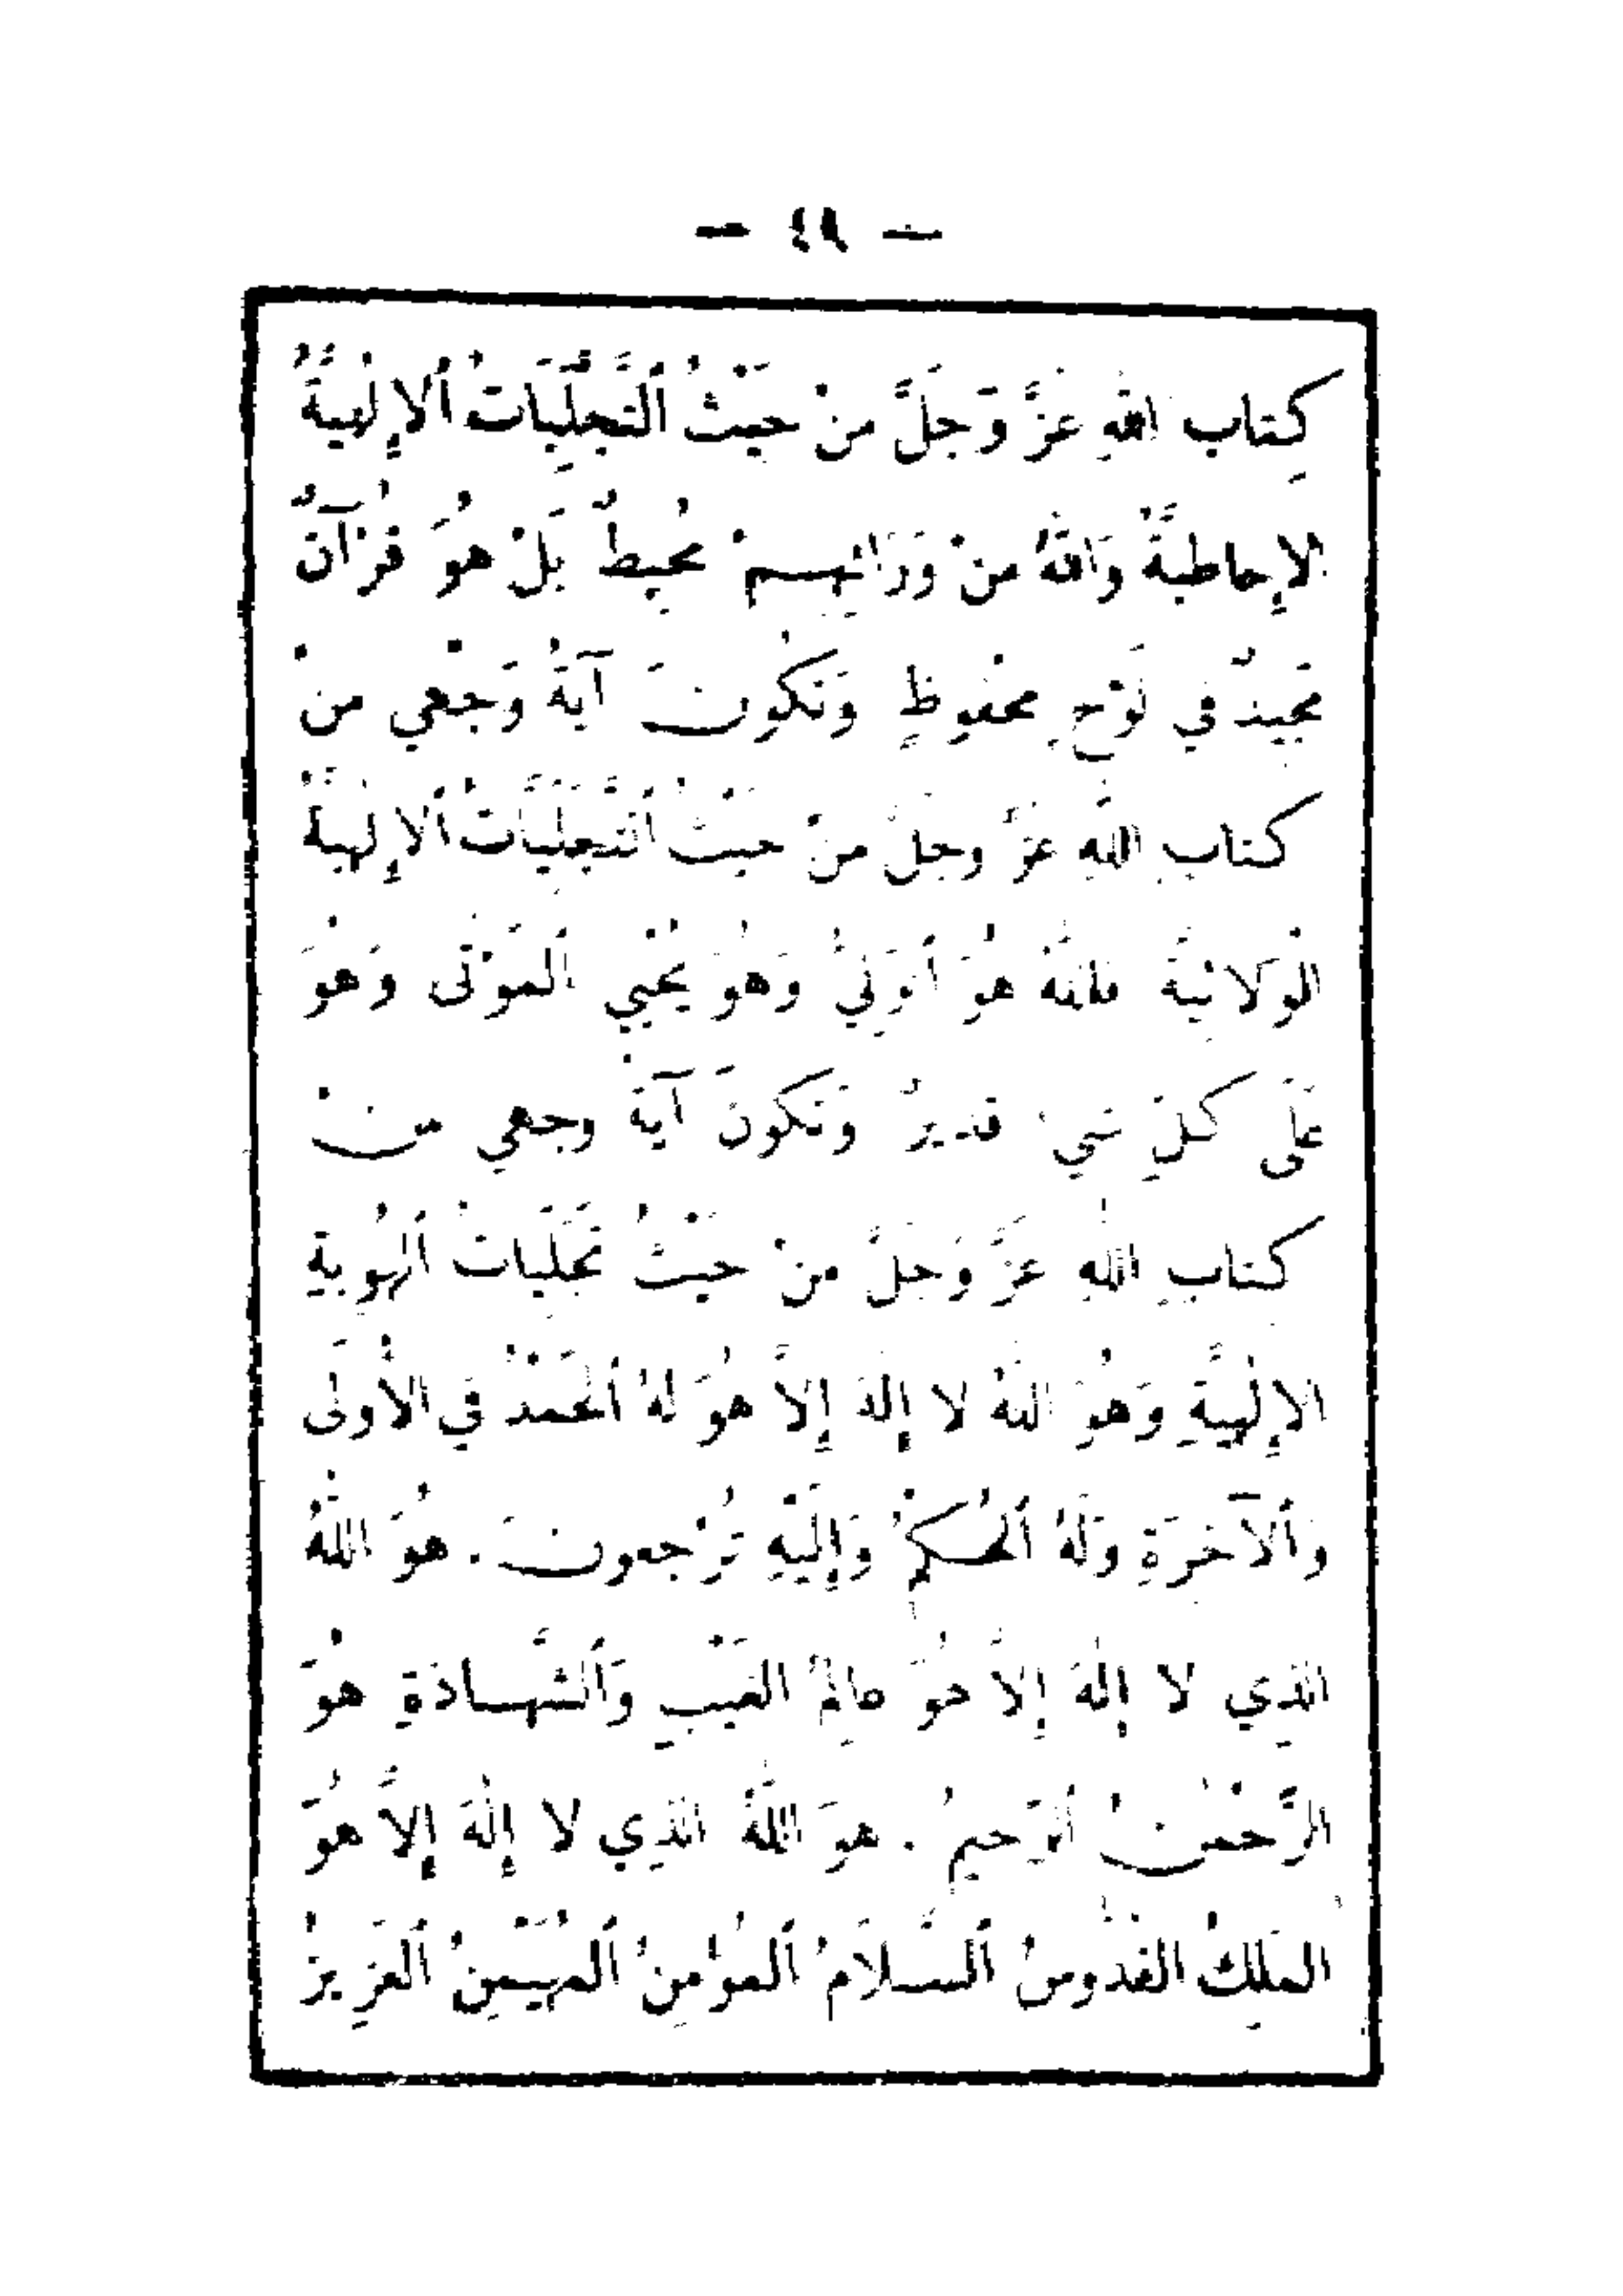 — ٤٩ —
كِتابِ اللهِ عَزَّ وَجَلَّ مِنْ حَيْثُ ٱلتَّجَلِّيَاتُ ٱلإِلٰهِيَّةُ
الإِحاطِيَّةُ وَاللهُ مِنْ وَرَائِهِمْ مُحِيطٌ بَلْ هُوَ قُرْآنٌ
مَجِيدٌ في لَوْحٍ محْفُوظٍ وَتَكُونَ آيَةُ وَجْهِي مِنْ
كتابِ اللهِ عَزَّ وجَلَّ مِنْ حَيْثُ ٱلتَّجَلِّيَّاتُ ٱلإِلٰهِيَّةُ
الْوَلائِيَّةُ فاللهُ هُوَ ٱلْوَلِيُّ وَهُوَ يُحْيِي ٱلْمَوْتَى وَهُوَ
عَلَى كُلِّ شَيْءٍ قَدِيرٌ وَتَكُونَ آيَةُ وجهي مِنْ
كتابِ اللهِ عَزَّ وَجَلَّ مِنْ حَيْثُ تَجَلِّيَاتُ ٱلْهُوِيَّةِ
الإِلٰهِيَّةِ وَهُوَ اللهُ لا إِلٰهَ إِلاَّ هُوَ لهُ ٱلْحَمْدُ في الأُولَى
وَٱلآخِرَةِ وَلَهُ ٱلْحُكْمُ وَإِلَيْهِ تُرْجعونَ . هُوَ اللهُ
الَّذِي لا إِلٰهَ إِلاَّ هُوَ عالِمُ الْغَيْبِ وَٱلشَّهادَةِ هُوَ
الرَّحْمٰنُ ٱلرَّحيمُ . هوَ اللهُ الَّذِي لا إِلٰهَ إِلاَّ هُوَ
المَلِكُ القُدُّوسُ ٱلسَّلاَمُ ٱلمُؤْمِنُ ٱلمُهَيْمِنُ ٱلْعَزِيزُ